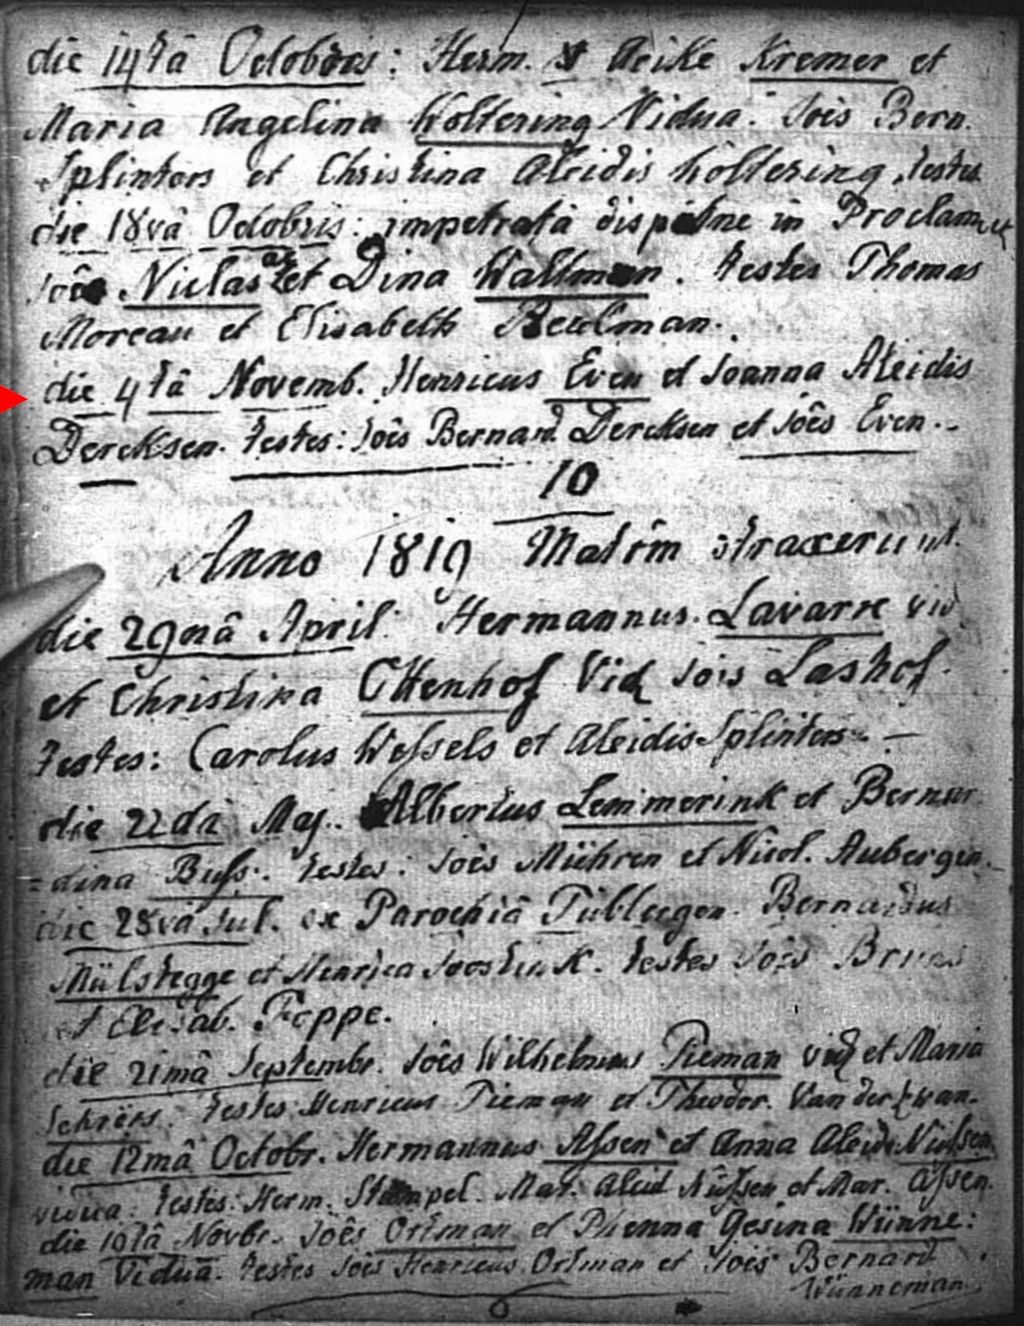 die 14tâ Octobris: Herm. Arike Kremer et
Maria Angelina Holtering Vidua. Jois Bern.
Splinters et Christina Aleidis Holtering, testes
die 18vâ Octobris: impetratâ dispâtne in Proclam
Joês Niclas et Dina Waltman. testes Thomas
Moreau et Elisabeth Beulman.
die 4tâ Novemb. Henricus Even et Joanna Aleidis
Dercksen. testes: Joês Bernard Dercksen et Joês Even.
10
Anno 1819 Matrim straxerunt.
die 29nâ April: Hermannus Lavarre vid
et Christina Ottenhof Vid Jois Lashof.
testes: Carolus Wessels et Aleidis Splinters. —
die 22dâ Maj. Albertus Lemmerink et Bernar
= dina Buss. testes: Joês Mühren et Nicol. Aubergen.
die 28vâ Jul. ex Parochiâ Tubbergen. Bernardus
Mülstegge et Henrica Joostink. testes Joês Brunes
et Elisab. Foppe.
die 21mâ Septembr. Joês Wilhelmus Tieman vid et Maria
Schröer. testes Henricus Tieman et Theodor. Van der Zwan.
die 12mâ Octobr. Hermannus Assen et Anna Aleid Niessen
vidua. testes. Herm. Stempel. Mar. Aleid Niessen et Mar. Assen.
die 19tâ Novbr. Joês Ortman et Phenna Gesina Wünne:
man Vidua. testes Joês Henricus Ortman et Joês Bernard
Wünneman.